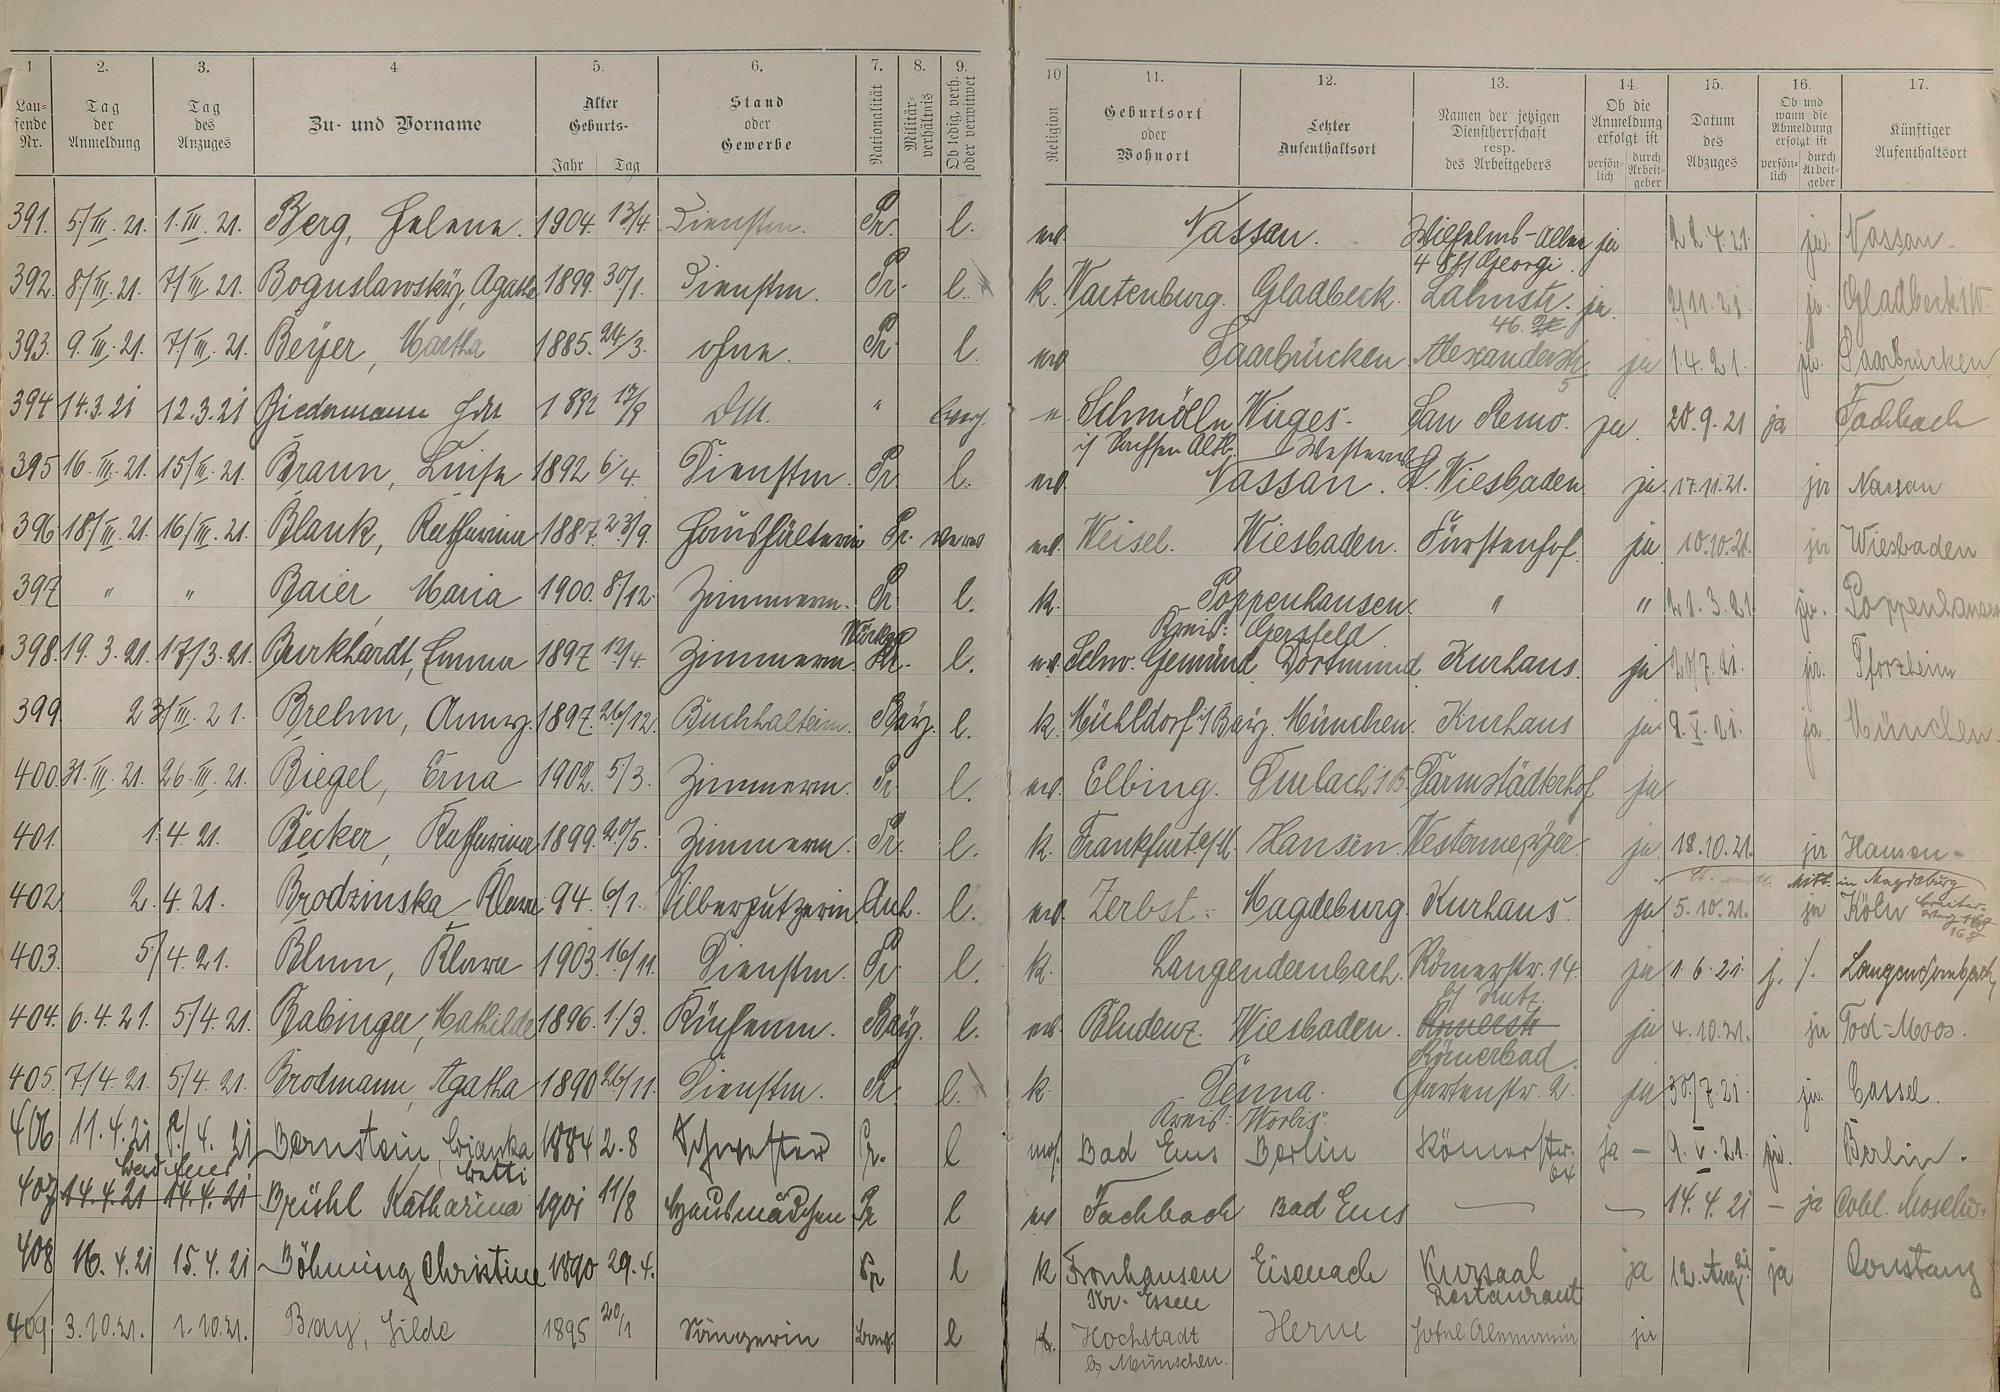 1 2. 3. 4 5. 6. 7. 8. 9. 10 11. 12. 13. 14. 15. 16. 17.
Laufende Nr. Tag der Anmeldung Tag des Anzuges Zu- und Vorname Alter Geburts- Jahr Tag Stand oder Gewerbe Nationalität Militärverhältnis Ob ledig, verh. oder verwitwet Religion Geburtsort oder Wohnort Letzter Aufenthaltsort Namen der jetzigen Dienstherrschaft resp. des Arbeitgebers Ob die Anmeldung erfolgt ist persönlich durch Arbeitgeber Datum des Abzuges Ob und wann die Abmeldung erfolgt ist persönlich durch Arbeitgeber Künftiger Aufenthaltsort
391. 5/III. 21. 1. III. 21. Berg, Helene. 1904. 13/4. Dienstm. Pr. l. ev. Nassau. Wilhelms-Allee ja 22.4.21. ja. Nassau.
4 bei Georgi.
392. 8/III. 21. 7/III. 21. Boguslawsky, Agatha 1899. 30/1. Dienstm. Pr. l. k. Wartenburg. Gladbeck. Lahnstr. ja. 2/11.21. ja. Gladbeck i W.
46.
393. 9. III. 21. 7/III. 21. Beyer, Martha 1885. 24/3. ohne. Pr. l. ev. Saarbrücken. Alexanderstr. ja 1.4.21. ja. Saarbrücken
5
394 14.3.21 12.3.21 Biedermann 1892 17/8 " " Schmölln Wirges. San Remo. ja. 20.9.21 ja Fachbach
i/ Sachsen Altb. Westerw.
395 16. III. 21. 15/III. 21. Braun, Luise 1892 6/4. Dienstm. Pr. l. ev. Nassau. St. Wiesbaden. ja. 17.11.21. ja Nassau
396 18/III. 21. 16/III. 21. Blank, Katharina 1887. 23/9. Haushälterin Pr. verw. ev. Weisel. Wiesbaden. Fürstenhof. ja 10.10.21. ja Wiesbaden
397 " " Baier Maria 1900. 8/12. Zimmerm. Pr. l. k. Poppenhausen. " " 21.3.21 ja. Poppenhausen
Kreis: Gersfeld
398. 19.3.21. 17/3.21. Burkhardt, Emma 1897 12/4. Zimmerm. l. ev. Schw. Gemünd Dortmund Kurhaus. ja 20/7.21. ja. Pforzheim.
399. 23/III. 21. Brehm, Anney. 1897. 26/12. Buchhalterin. Bay. l. k. Mühldorf i/Bay. München. Kurhaus ja 9.V.21. ja. München.
400. 31. III. 21. 26. III. 21. Biegel, Erna 1902. 5/3. Zimmerm. Pr. l. ev. Elbing. Durlach i B. Darmstädterhof ja
401. 1.4.21. Becker, Katharina 1899. 20/5. Zimmerm. Pr. l. k. Frankfurt a/M. Hansen. ja 18.10.21. ja Hausen-
Mitt. in Magdeburg
402. 2.4.21. Brodzinska Klara 94. 6/1. Silberputzerin Anh. l. ev. Zerbst. Magdeburg. Kurhaus. ja 5.10.21. ja Köln
168
403. 5/4.21. Blum, Klara 1903. 16/11. Dienstm. Pr. l. k. Langendernbach. Römerstr. 14. ja 1.6.21. j. /. Langendernbach
404. 6.4.21. 5/4.21. Babinger, Mathilde 1896. 1/3. Küchenm. Bay. l. ev. Bludenz. Wiesbaden. ja 4.10.21. ja Tod-Moos.
Römerbad.
405. 7/4.21. 5/4.21. Brodmann, Agatha 1890 26/11. Dienstm. Pr. l. k. Gartenstr. 2. ja 30/7.21. ja. Cassel.
Kreis: Worbis.
406 11.4.21 8/4.21 Bernstein, Bianka 1884 2.8 Schwester Pr. l mos. Bad Ems Berlin Römerstr. ja – 9.V.21. ja. Berlin.
Bad Ems Betti
407 14.4.21 14.4.21 Brühl Katharina 1901 11/8 Hausmädchen Pr l ev Fachbach Bad Ems — — 14.4.21 – ja Cobl. Moselw.
408 16.4.21 15.4.21 Böhming Christine 1890 29.4. Pr l k Fronhausen Eisenach Kursaal ja 12. Aug. 21 ja Constanz
Kr. Essen Restaurant
409 3.10.21. 1.10.21. Bay, Hilde 1895 20/1 Sängerin l k. Hochstadt Herne Hotel Alemannia ja
b/ München.